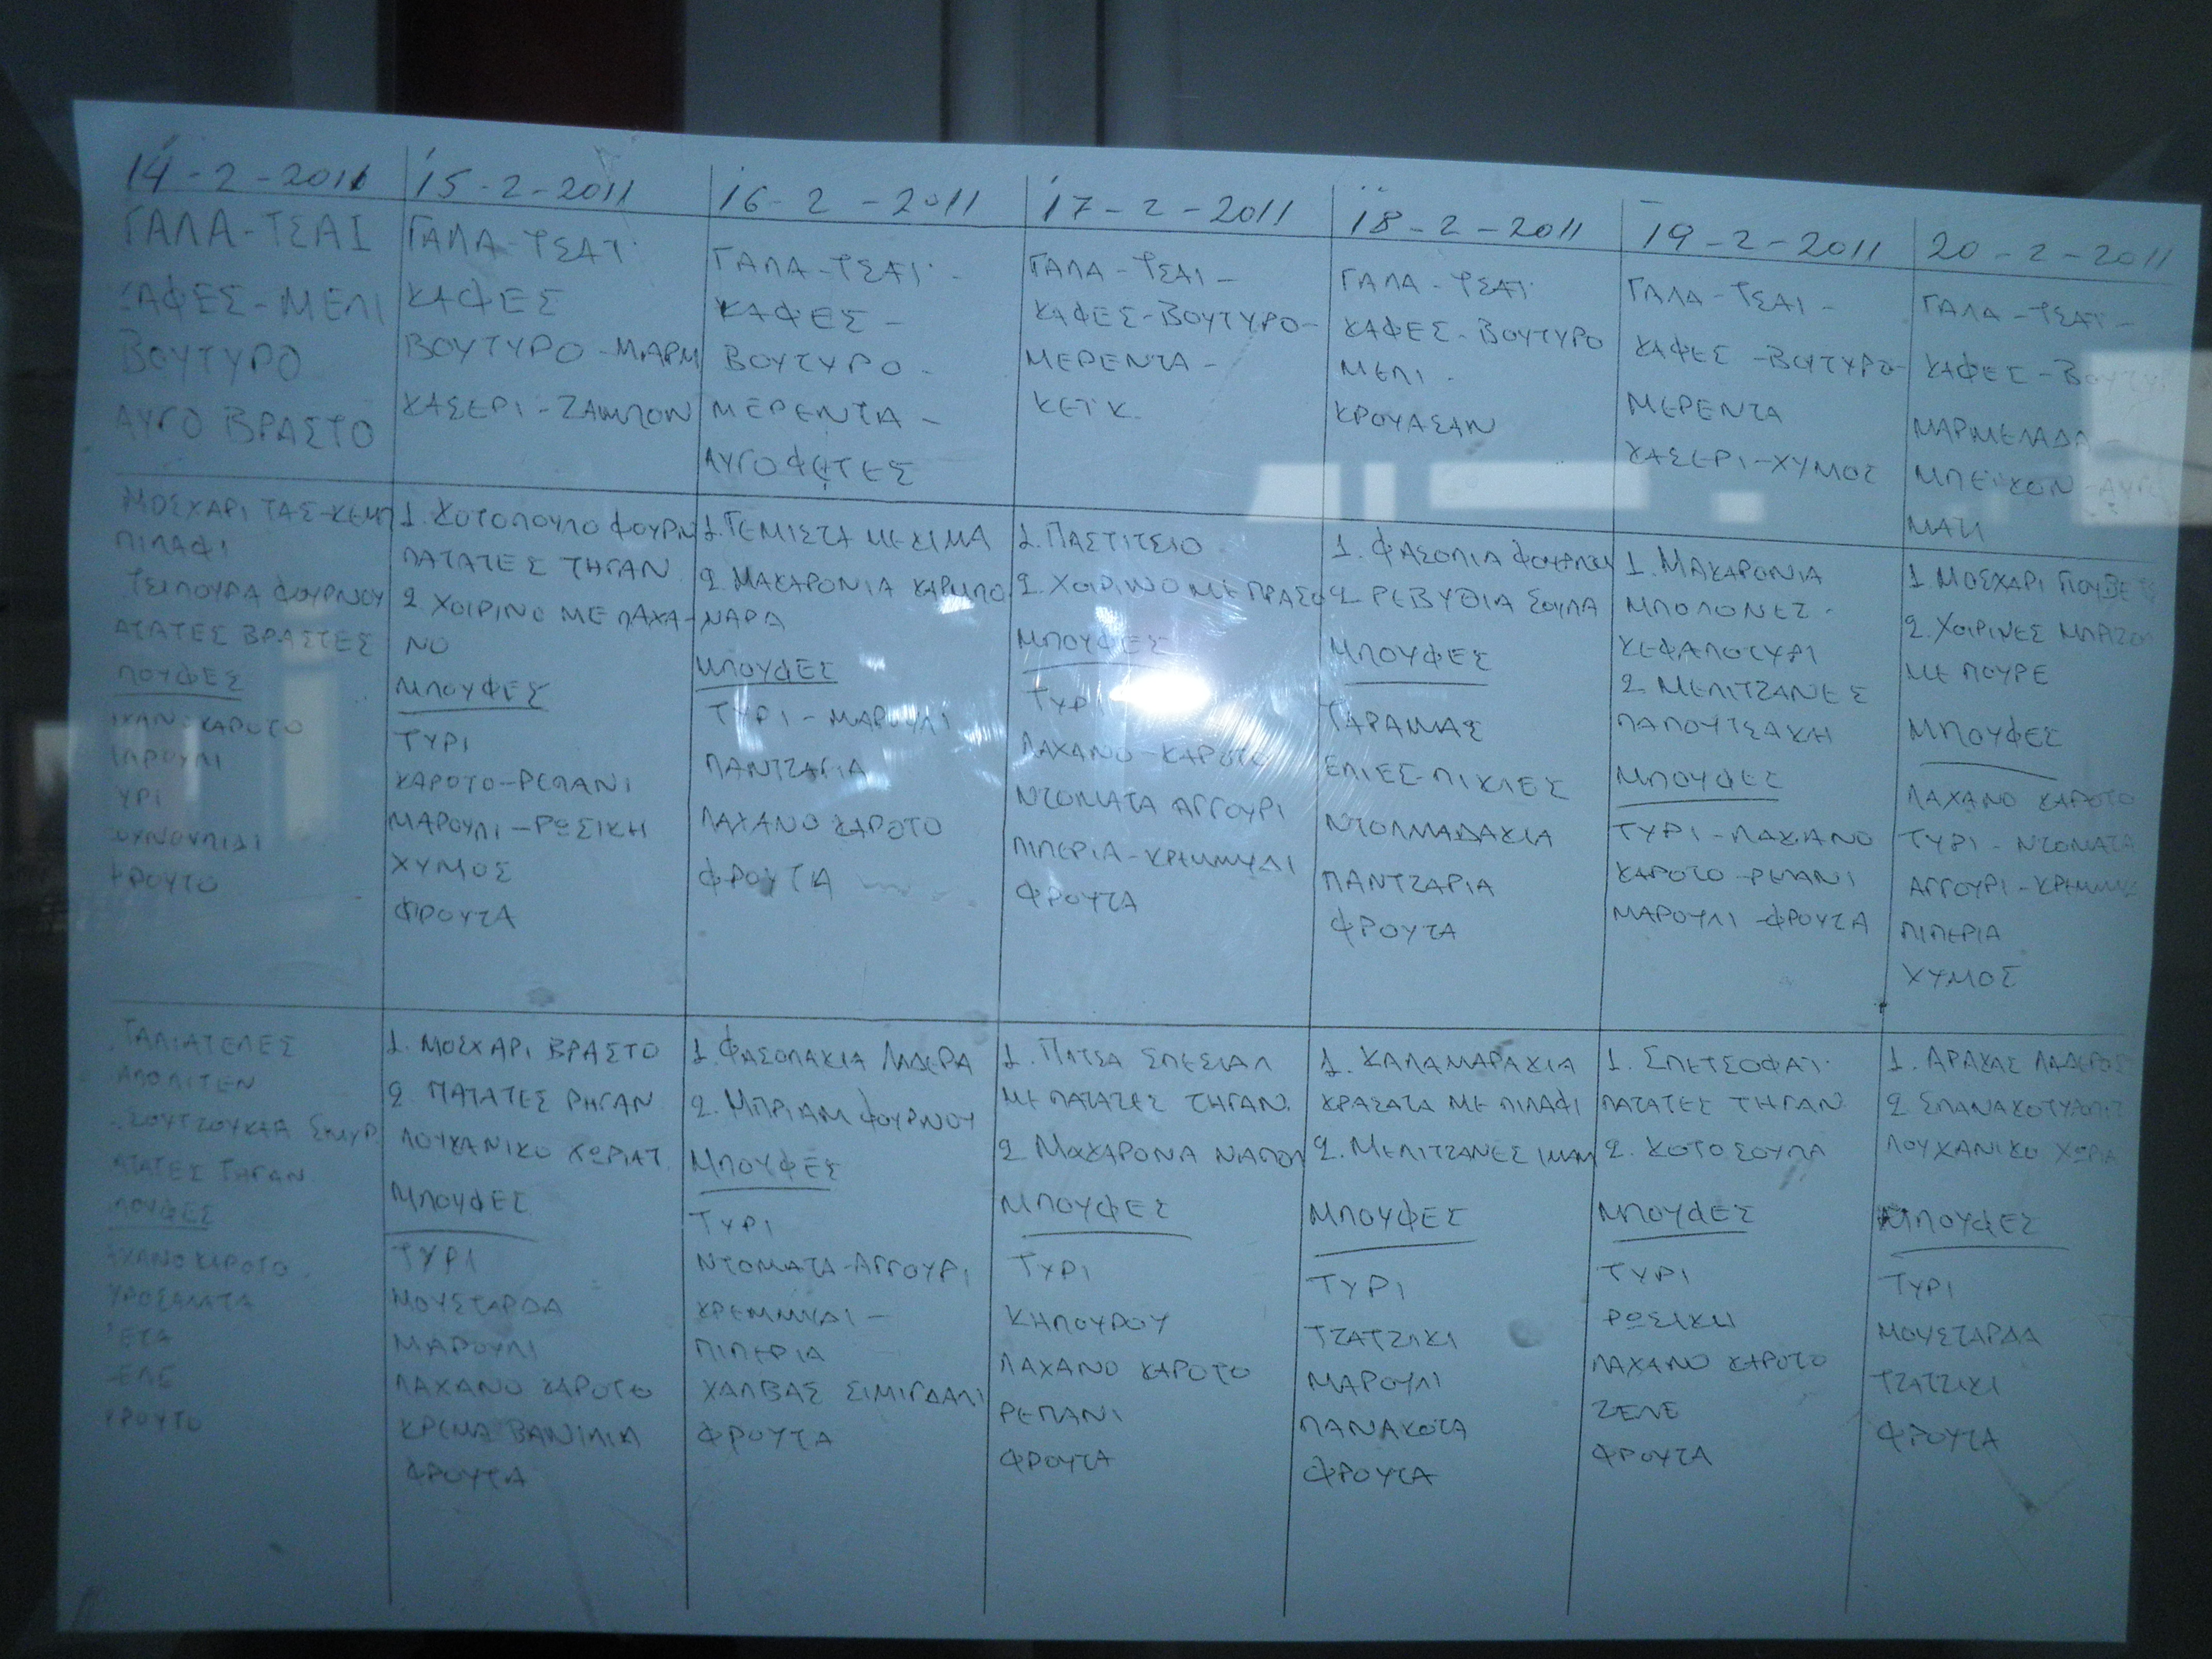 14-2-2011
ΓΑΛΑ-ΤΣΑΙ
ΚΑΦΕΣ-ΜΕΛΙ
ΒΟΥΤΥΡΟ
ΑΥΓΟ ΒΡΑΣΤΟ
ΜΟΣΧΑΡΙ ΤΑΣ-ΚΕΜΠ
ΠΙΛΑΦΙ
ΤΣΙΠΟΥΡΑ ΦΟΥΡΝΟΥ
ΑΤΑΤΕΣ ΒΡΑΣΤΕΣ
ΠΟΥΦΕΣ
ΑΧΑΝΟ ΚΑΡΟΤΟ
ΑΡΟΥΛΙ
ΥΡΙ
ΟΥΝΟΥΠΙΔΙ
ΦΡΟΥΤΟ
ΤΑΛΙΑΤΕΛΕΣ
ΑΠΟΛΙΤΕΝ
ΣΟΥΤΖΟΥΚΑΚΙΑ ΣΜΥΡ.
ΑΤΑΤΕΣ ΤΗΓΑΝ
ΠΟΥΦΕΣ
ΑΧΑΝΟ ΚΑΡΟΤΟ
ΥΡΟΣΑΛΑΤΑ
ΕΤΑ
ΕΛΕ
ΦΡΟΥΤΟ
15-2-2011
ΓΑΛΑ-ΤΣΑΪ
ΚΑΦΕΣ
ΒΟΥΤΥΡΟ-ΜΑΡΜ
ΚΑΣΕΡΙ-ΖΑΜΠΟΝ
1. ΚΟΤΟΠΟΥΛΟ ΦΟΥΡΝ
ΠΑΤΑΤΕΣ ΤΗΓΑΝ
2 ΧΟΙΡΙΝΟ ΜΕ ΛΑΧΑ-
ΝΟ
ΜΠΟΥΦΕΣ
ΤΥΡΙ
ΚΑΡΟΤΟ-ΡΕΠΑΝΙ
ΜΑΡΟΥΛΙ-ΡΩΣΙΚΗ
ΧΥΜΟΣ
ΦΡΟΥΤΑ
1. ΜΟΣΧΑΡΙ ΒΡΑΣΤΟ
2. ΠΑΤΑΤΕΣ ΡΗΓΑΝ
ΛΟΥΚΑΝΙΚΟ ΧΩΡΙΑΤ.
ΜΠΟΥΦΕΣ
ΤΥΡΙ
ΜΟΥΣΤΑΡΔΑ
ΜΑΡΟΥΛΙ
ΛΑΧΑΝΟ ΚΑΡΟΤΟ
ΚΡΕΜΑ ΒΑΝΙΛΙΑ
ΦΡΟΥΤΑ
16-2-2011
ΓΑΛΑ-ΤΣΑΪ-
ΚΑΦΕΣ-
ΒΟΥΤΥΡΟ-
ΜΕΡΕΝΤΑ-
ΑΥΓΟΦΕΤΕΣ
1. ΓΕΜΙΣΤΑ ΜΕ ΚΙΜΑ
2. ΜΑΚΑΡΟΝΙΑ ΚΑΡΜΠΟ
ΝΑΡΑ
ΜΠΟΥΦΕΣ
ΤΥΡΙ-ΜΑΡΟΥΛΙ
ΠΑΝΤΖΑΡΙΑ
ΛΑΧΑΝΟ ΚΑΡΟΤΟ
ΦΡΟΥΤΑ
1. ΦΑΣΟΛΑΚΙΑ ΛΑΔΕΡΑ
2. ΜΠΡΙΑΜ ΦΟΥΡΝΟΥ
ΜΠΟΥΦΕΣ
ΤΥΡΙ
ΝΤΟΜΑΤΑ-ΑΓΓΟΥΡΙ
ΚΡΕΜΜΥΔΙ-
ΠΙΠΕΡΙΑ
ΧΑΛΒΑΣ ΣΙΜΙΓΔΑΛΙ
ΦΡΟΥΤΑ
17-2-2011
ΓΑΛΑ-ΤΣΑΙ-
ΚΑΦΕΣ-ΒΟΥΤΥΡΟ-
ΜΕΡΕΝΤΑ-
ΚΕΙΚ
1. ΠΑΣΤΙΤΣΙΟ
2. ΧΟΙΡΙΝΟ ΜΕ ΠΡΑΣΟ
ΜΠΟΥΦΕΣ
ΤΥΡΙ
ΛΑΧΑΝΟ-ΚΑΡΟΤΟ
ΝΤΟΜΑΤΑ ΑΓΓΟΥΡΙ
ΠΙΠΕΡΙΑ-ΚΡΕΜΜΥΔΙ
ΦΡΟΥΤΑ
1. ΠΙΤΣΑ ΣΠΕΣΙΑΛ
ΜΕ ΠΑΤΑΤΕΣ ΤΗΓΑΝ.
2 ΜΑΚΑΡΟΝΑ ΝΑΠΟΛ
ΜΠΟΥΦΕΣ
ΤΥΡΙ
ΚΗΠΟΥΡΟΥ
ΛΑΧΑΝΟ ΚΑΡΟΤΟ
ΡΕΠΑΝΙ
ΦΡΟΥΤΑ
18-2-2011
ΓΑΛΑ-ΤΣΑΪ
ΚΑΦΕΣ-ΒΟΥΤΥΡΟ
ΜΕΛΙ-
ΚΡΟΥΑΣΑΝ
1. ΦΑΣΟΛΙΑ ΦΟΥΡΝΟΥ
2 ΡΕΒΥΘΙΑ ΣΟΥΠΑ
ΜΠΟΥΦΕΣ
ΤΑΡΑΜΑΣ
ΕΛΙΕΣ-ΠΙΚΛΕΣ
ΝΤΟΛΜΑΔΑΚΙΑ
ΠΑΝΤΖΑΡΙΑ
ΦΡΟΥΤΑ
1. ΚΑΛΑΜΑΡΑΚΙΑ
ΚΡΑΣΑΤΑ ΜΕ ΠΙΛΑΦΙ
2. ΜΕΛΙΤΖΑΝΕΣ ΙΜΑΜ
ΜΠΟΥΦΕΣ
ΤΥΡΙ
ΤΖΑΤΖΙΚΙ
ΜΑΡΟΥΛΙ
ΠΑΝΑΚΟΤΑ
ΦΡΟΥΤΑ
19-2-2011
ΓΑΛΑ-ΤΣΑΙ-
ΚΑΦΕΣ-ΒΟΥΤΥΡΟ-
ΜΕΡΕΝΤΑ
ΚΑΣΕΡΙ-ΧΥΜΟΣ
1. ΜΑΚΑΡΟΝΙΑ
ΜΠΟΛΟΝΕΖ-
ΚΕΦΑΛΟΤΥΡΙ
2 ΜΕΛΙΤΖΑΝΕΣ
ΠΑΠΟΥΤΣΑΚΗ
ΜΠΟΥΦΕΣ
ΤΥΡΙ-ΛΑΧΑΝΟ
ΚΑΡΟΤΟ-ΡΕΠΑΝΙ
ΜΑΡΟΥΛΙ-ΦΡΟΥΤΑ
1. ΣΠΕΤΣΟΦΑΪ
ΠΑΤΑΤΕΣ ΤΗΓΑΝ
2. ΚΟΤΟΣΟΥΠΑ
ΜΠΟΥΦΕΣ
ΤΥΡΙ
ΡΩΣΙΚΗ
ΛΑΧΑΝΟ ΚΑΡΟΤΟ
ΖΕΛΕ
ΦΡΟΥΤΑ
20-2-2011
ΓΑΛΑ-ΤΣΑΪ-
ΚΑΦΕΣ-ΒΟΥΤΥ
ΜΑΡΜΕΛΑΔΑ
ΜΠΕΙΚΟΝ-ΑΥΓΑ
ΜΑΤΙ
1. ΜΟΣΧΑΡΙ ΓΙΟΥΒΕΤΣ
2. ΧΟΙΡΙΝΕΣ ΜΠΡΙΖΟΛ
ΜΕ ΠΟΥΡΕ
ΜΠΟΥΦΕΣ
ΛΑΧΑΝΟ ΚΑΡΟΤΟ
ΤΥΡΙ-ΝΤΟΜΑΤΑ
ΑΓΓΟΥΡΙ-ΚΡΕΜΜΥΔ
ΠΙΠΕΡΙΑ
ΧΥΜΟΣ
1. ΑΡΑΚΑΣ ΛΑΔΕΡΟΣ
2 ΣΠΑΝΑΚΟΤΥΡΟΠΙΤ
ΛΟΥΚΑΝΙΚΟ ΧΩΡΙΑ
ΜΠΟΥΦΕΣ
ΤΥΡΙ
ΜΟΥΣΤΑΡΔΑ
ΤΖΑΤΖΙΚΙ
ΦΡΟΥΤΑ